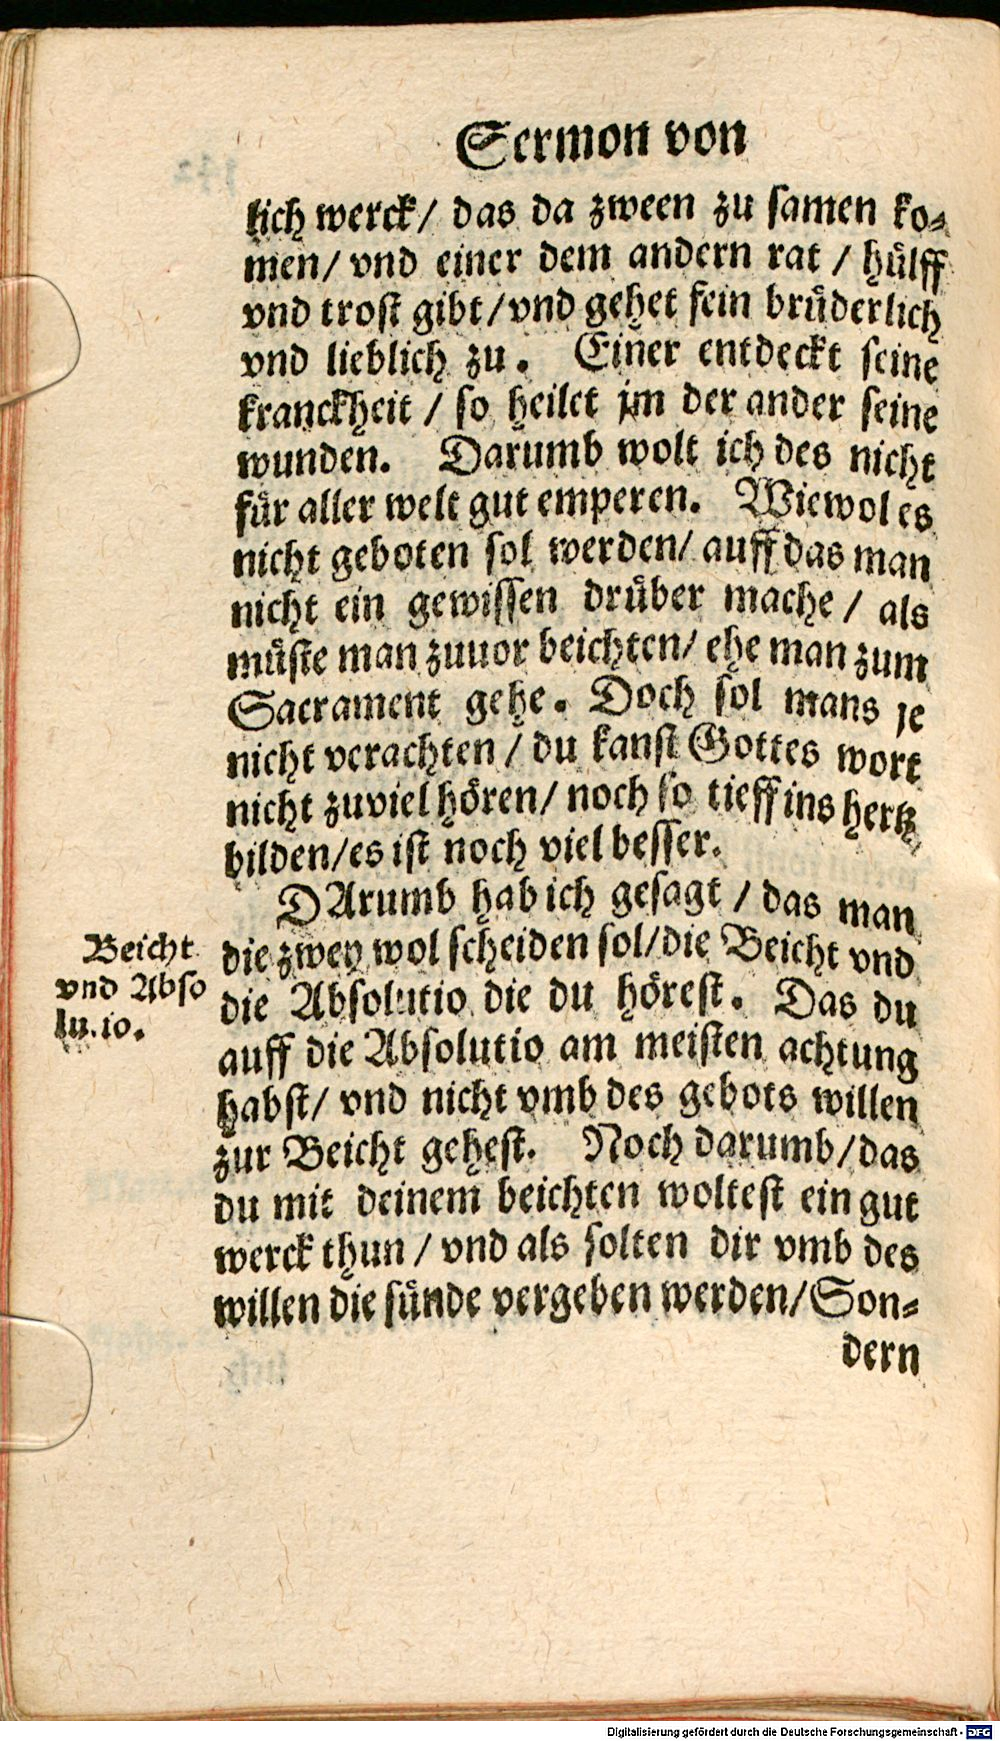 Sermon von
lich werck/ das da zween zu samen ko⸗
men/ vnd einer dem andern rat / huͤlff
vnd trost gibt/vnd gehet fein bruͤderlich
vnd lieblich zu. Einer entdeckt seine
kranckheit / so heilet jm der ander seine
wunden. Darumb wolt ich des nicht
fuͤr aller welt gut emperen. Wiewol es
nicht geboten sol werden/ auff das man
nicht ein gewissen druͤber mache / als
muͤste man zuuor beichten/ ehe man zum
Sacrament gehe. Doch sol mans je
nicht verachten / du kanst Gottes wort
nicht zuviel hoͤren/ noch so tieff ins hertz
bilden/es ist noch viel besser.
DArumb hab ich gesagt / das man
die zwey wol scheiden sol/die Beicht vnd
die Absolutio die du hoͤrest. Das du
auff die Absolutio am meisten achtung
habst/ vnd nicht vmb des gebots willen
zur Beicht gehest. Noch darumb/das
du mit deinem beichten woltest ein gut
werck thun / vnd als solten dir vmb des
willen die suͤnde vergeben werden/Son⸗
dern
Beicht
vnd Abso
lu.io.
Digitalisierung gefördert durch die Deutsche Forschungsgemeinschaft - DFG